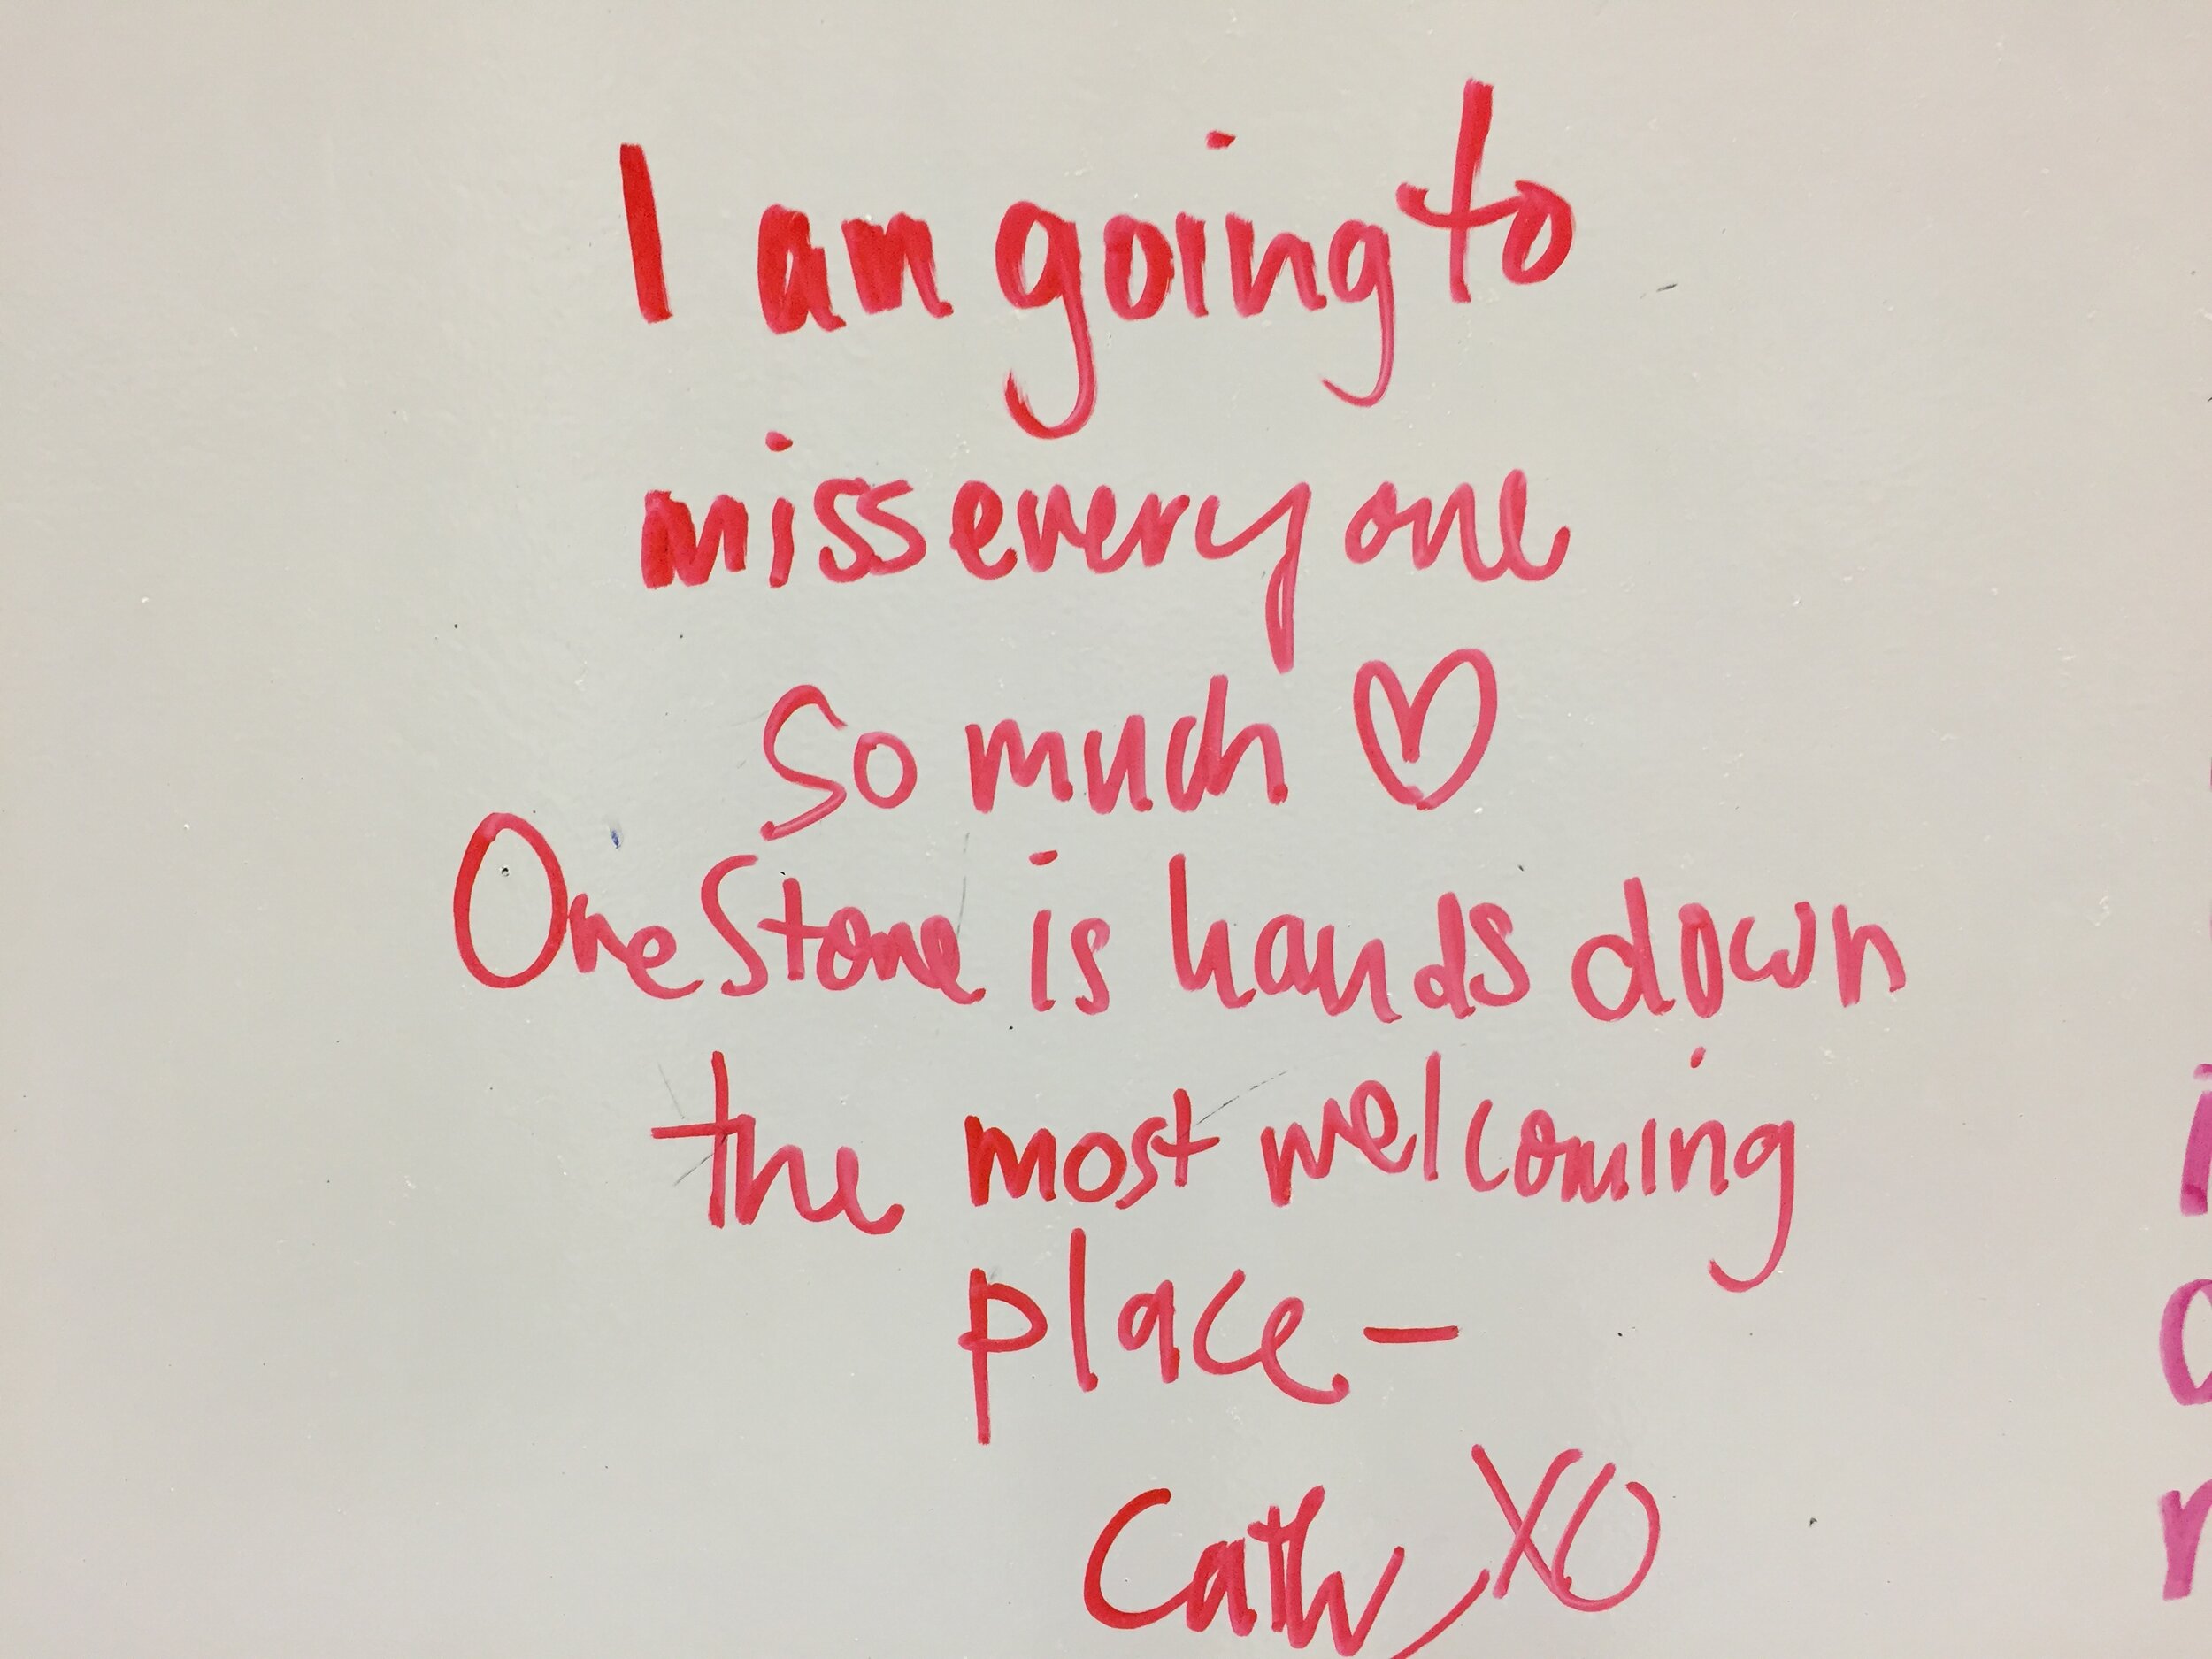 I am going to
miss everyone
so much ♡
One Stone is hands down
the most welcoming
place –
Cathy XO